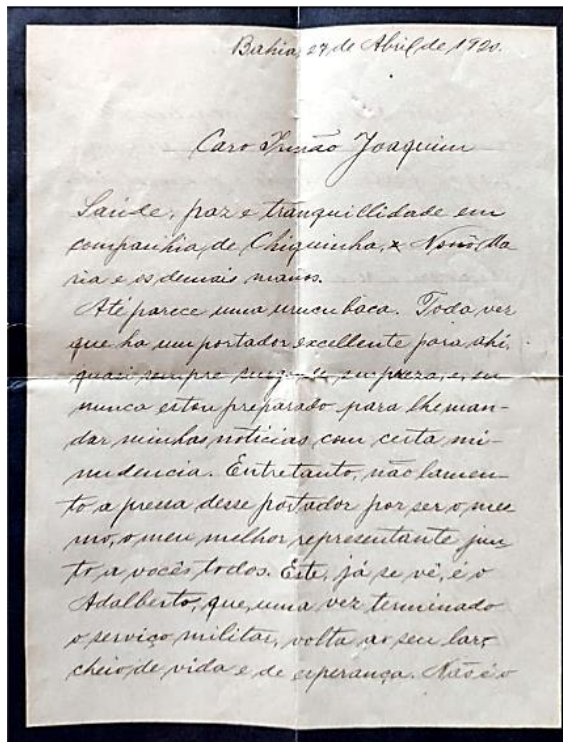 Bahia, 27 de Abril de 1920.
Caro Irmão Joaquim
Saúde, paz e tranquillidade em
companhia de Chiquinha, Nonô Ma
ria e os demais manos.
Até parece uma urucubaca. Toda vez
que ha um portador excellente para ahi,
quasi sempre e, eu
nunca estou preparado para lhe man-
dar minhas noticias com certa mi-
nudencia. Entretanto, não lamen-
to a pressa desse portador por ser o mes
mo, o meu melhor representante jun
to a vocês todos. Este, já se vê, é o
Adalberto, que, uma vez terminado
o serviço militar, volta ao seu lar,
cheio de vida e de esperança. Não é o